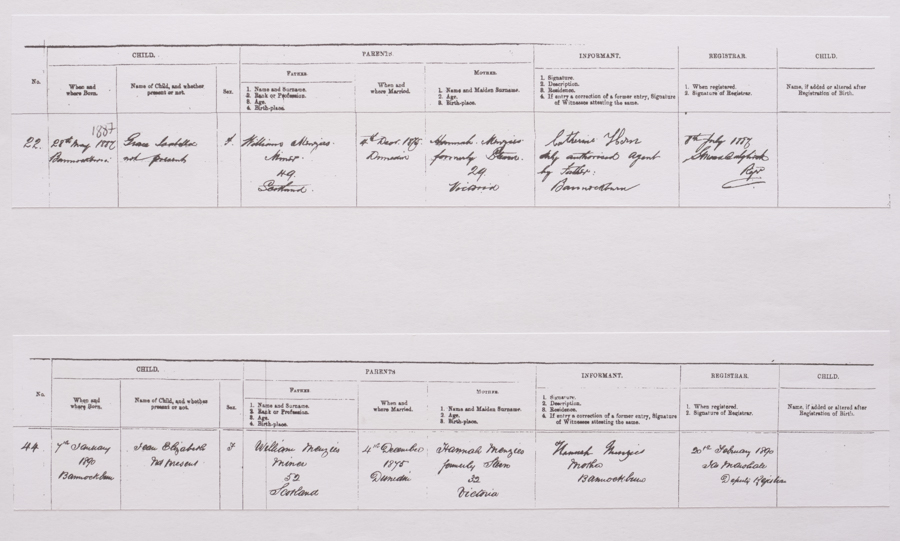 CHILD.
PARENTS.
INFORMANT.
REGISTRAR.
CHILD.
No.
When and
where Born.
Name of Child, and whether
present or not.
Sex.
FATHER.
1. Name and Surname.
2. Rank or Profession.
3. Age.
4. Birth-place.
When and
where Married.
MOTHER.
1. Name and Maiden Surname.
2. Age.
3. Birth-place.
1. Signature.
2. Description.
3. Residence.
4. If entry a correction of a former entry, Signature
of Witnesses attesting the same.
1. When registered.
2. Signature of Registrar.
Name, if added or altered after
Registration of Birth.
22.
1887
28th May 1887
Bannockburn
Grace
not present
F
William Menzies
Miner
49
Scotland.
4th Decr. 1875
Dunedin
Hannah Menzies
formerly
29
Victoria
Catherine Horn
duly authorised agent
by Father.
Bannockburn
8th July 1887
Regr
CHILD.
PARENTS
INFORMANT.
REGISTRAR.
CHILD.
No.
When and
where Born.
Name of Child, and whether
present or not.
Sex.
FATHER
1. Name and Surname.
2. Rank or Profession.
3. Age.
4. Birth-place.
When and
where Married.
MOTHER
1. Name and Maiden Surname.
2. Age.
3. Birth-place.
1. Signature.
2. Description.
3. Residence.
4. If entry a correction of a former entry, Signature
of Witnesses attesting the same.
1. When registered.
2. Signature of Registrar.
Name, if added or altered after
Registration of Birth.
44
7th January
1890
Bannockburn
Jean Elizabeth
Not Present
F
William Menzies
Miner
52
Scotland
4th December
1875
Dunedin
Hannah Menzies
formerly
32
Victoria
Hannah Menzies
Mother
Bannockburn
20th February 1890
Deputy Registrar